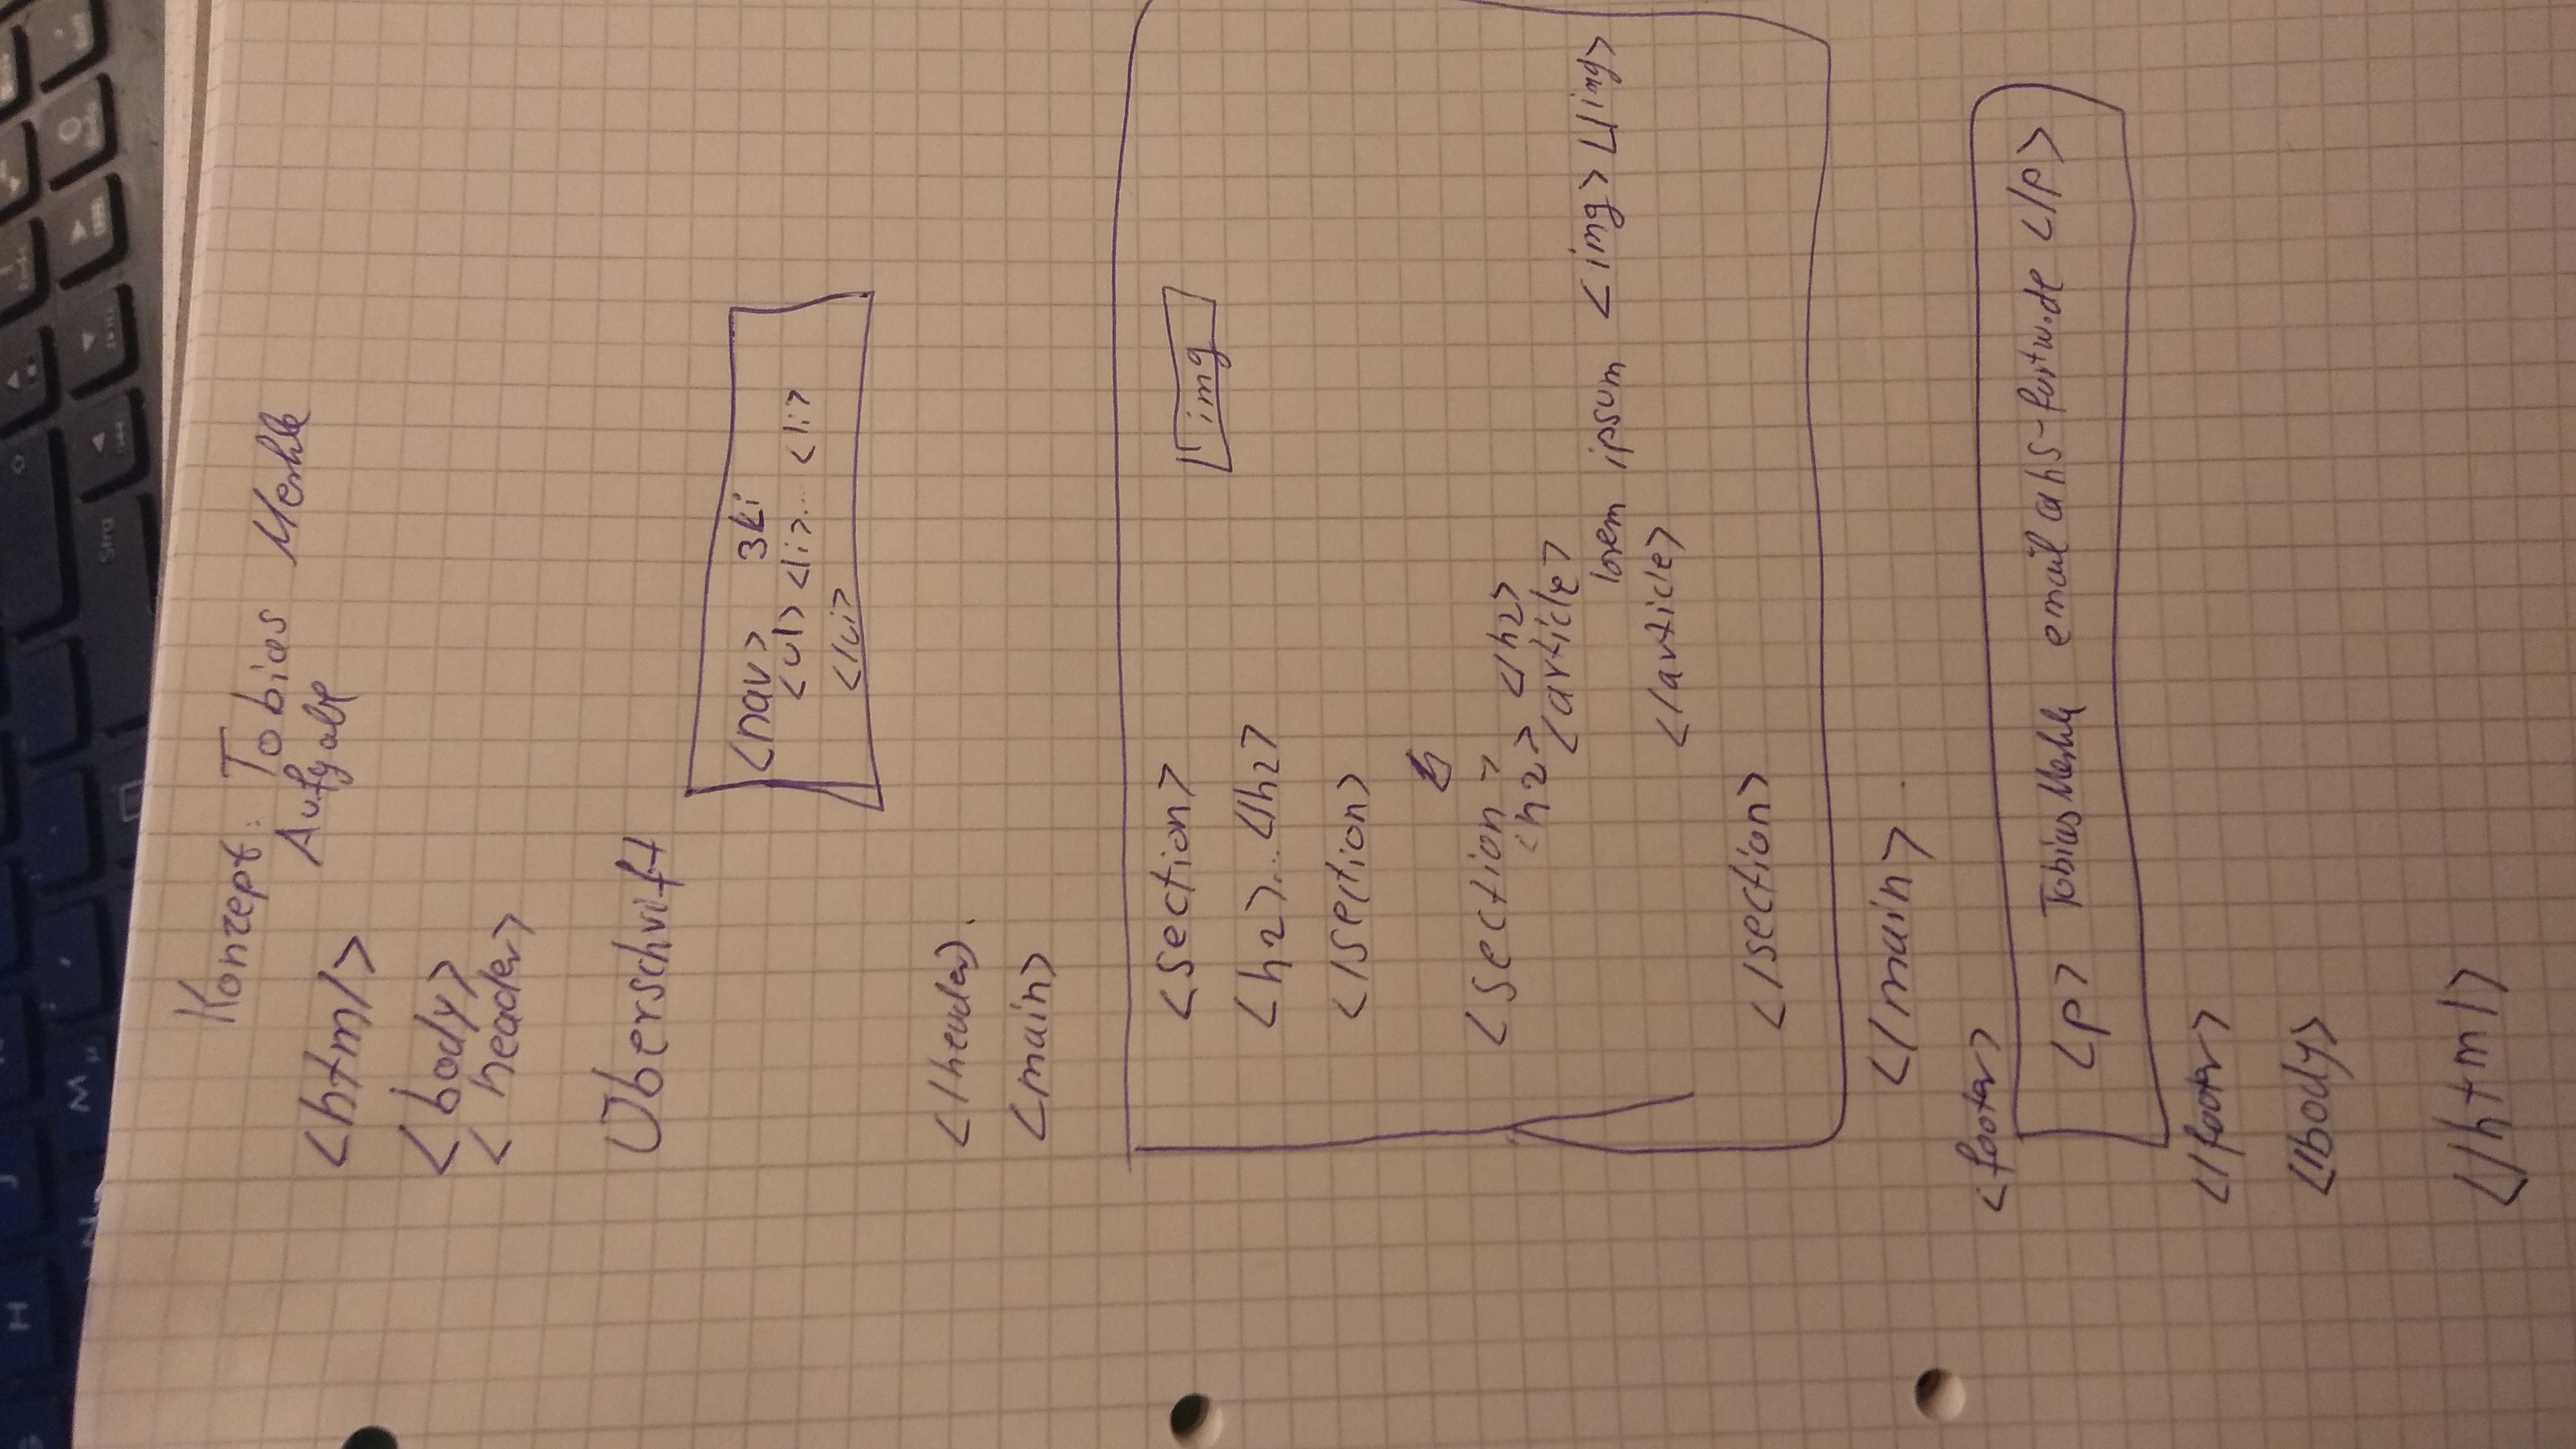 H J
N M µ
Strg
Konzept: Tobias Merkle
Aufgabe
<html>
<body>
< header>
Überschrift
<nav> 3Li
<ul> <li>... <li>
</ui>
</header).
<main>
<section> img
<h2>...</h2>
</section>
<section>
<h2> </h2>
<article>
lorem ipsum <img> </img>
</article>
</section>
</main>
<footer>
<p> Tobias Merkle email@hs-furtw.de </p>
</footer>
</body>
</html>